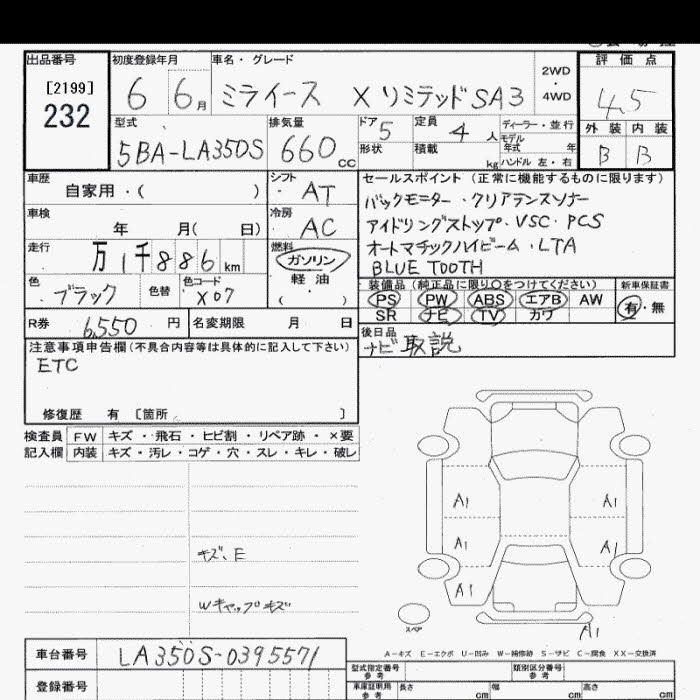 出品番号 初度登録年月 車名・グレード 評価点
[2199]
232
6 6月 ミライース X リミテッド SA3 2WD・4WD 4.5
型式 排気量 ドア 5 定員 4 人 ディーラー・並行 外装 内装
モデル年式 年
5BA-LA350S 660cc 形状 積載 kg ハンドル 左・右 B B
車歴 シフト セールスポイント (正常に機能するものに限ります)
自家用・( ) AT バックモニター・クリアランスソナー
車検 冷房 アイドリングストップ・VSC・PCS
年 月( 日) AC オートマチックハイビーム・LTA
走行 万 1千886km 燃料 ガソリン BLUE TOOTH
軽油
( )
色 ブラック 色替 色コード X07
装備品 (純正品に限り○をつけてください) 新車保証書
PS PW ABS エアB AW 有・無
SR ナビ TV カワ
R券 6,550 円 名変期限 月 日
後日品
ナビ取説
注意事項申告欄(不具合内容等は具体的に記入して下さい)
ETC
修復歴 有 [箇所 ]
検査員 FW キズ・飛石・ヒビ割・リペア跡・×要
記入欄 内装 キズ・汚レ・コゲ・穴・スレ・キレ・破レ
A1 A1
A1 A1
キズ、E
A1
Wキャップキズ
スペア
A1
A-キズ E-エクボ U-凹み W-補修跡 S-サビ C-腐食 XX-交換済
車台番号 LA350S-0395571
型式指定番号 参考 類別区分番号 参考
登録番号
車庫証明用 参考 長さ cm 幅 cm 高さ cm